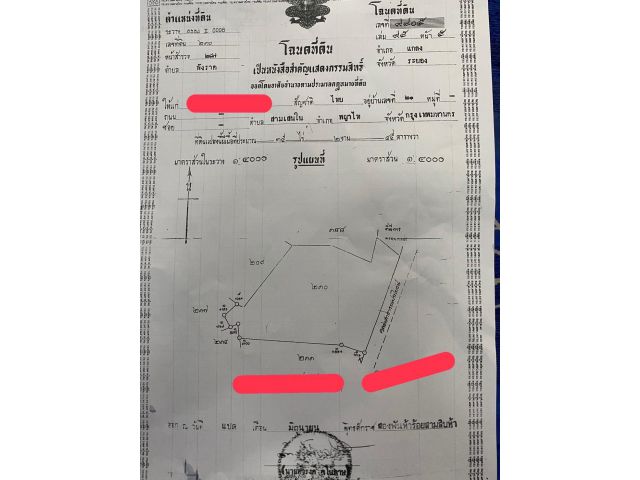 ตำแหน่งที่ดิน
โฉนดที่ดิน
ระวาง
เลขที่ดิน ๒๓๐
หน้าสำรวจ ๒๘๗
ตำบล พังราด
เลขที่ ๙๙๐๕
เล่ม ๙๕ หน้า ๕
อำเภอ แกลง
จังหวัด ระยอง
โฉนดที่ดิน
เป็นหนังสือสำคัญแสดงกรรมสิทธิ์
ออกโดยอาศัยอำนาจตามประมวลกฎหมายที่ดิน
ให้แก่ สัญชาติ ไทย อยู่บ้านเลขที่ ๒๑ หมู่ที่ –
ถนน – ตำบล สามเสนใน อำเภอ พญาไท จังหวัด กรุงเทพมหานคร
ซอย –
ที่ดินแปลงนี้มีเนื้อที่ประมาณ ๓๕ ไร่ ๒ งาน ๔๕ ตารางวา
มาตราส่วนในระวาง ๑:๔๐๐๐ รูปแผนที่ มาตราส่วน ๑:๔๐๐๐
๓๕๕
๒๐๙
๒๓๐
๒๓๗
๒๓๘
๒๓๓
ออก ณ วันที่ แปด เดือน มิถุนายน พุทธศักราช สองพันห้าร้อยสามสิบห้า